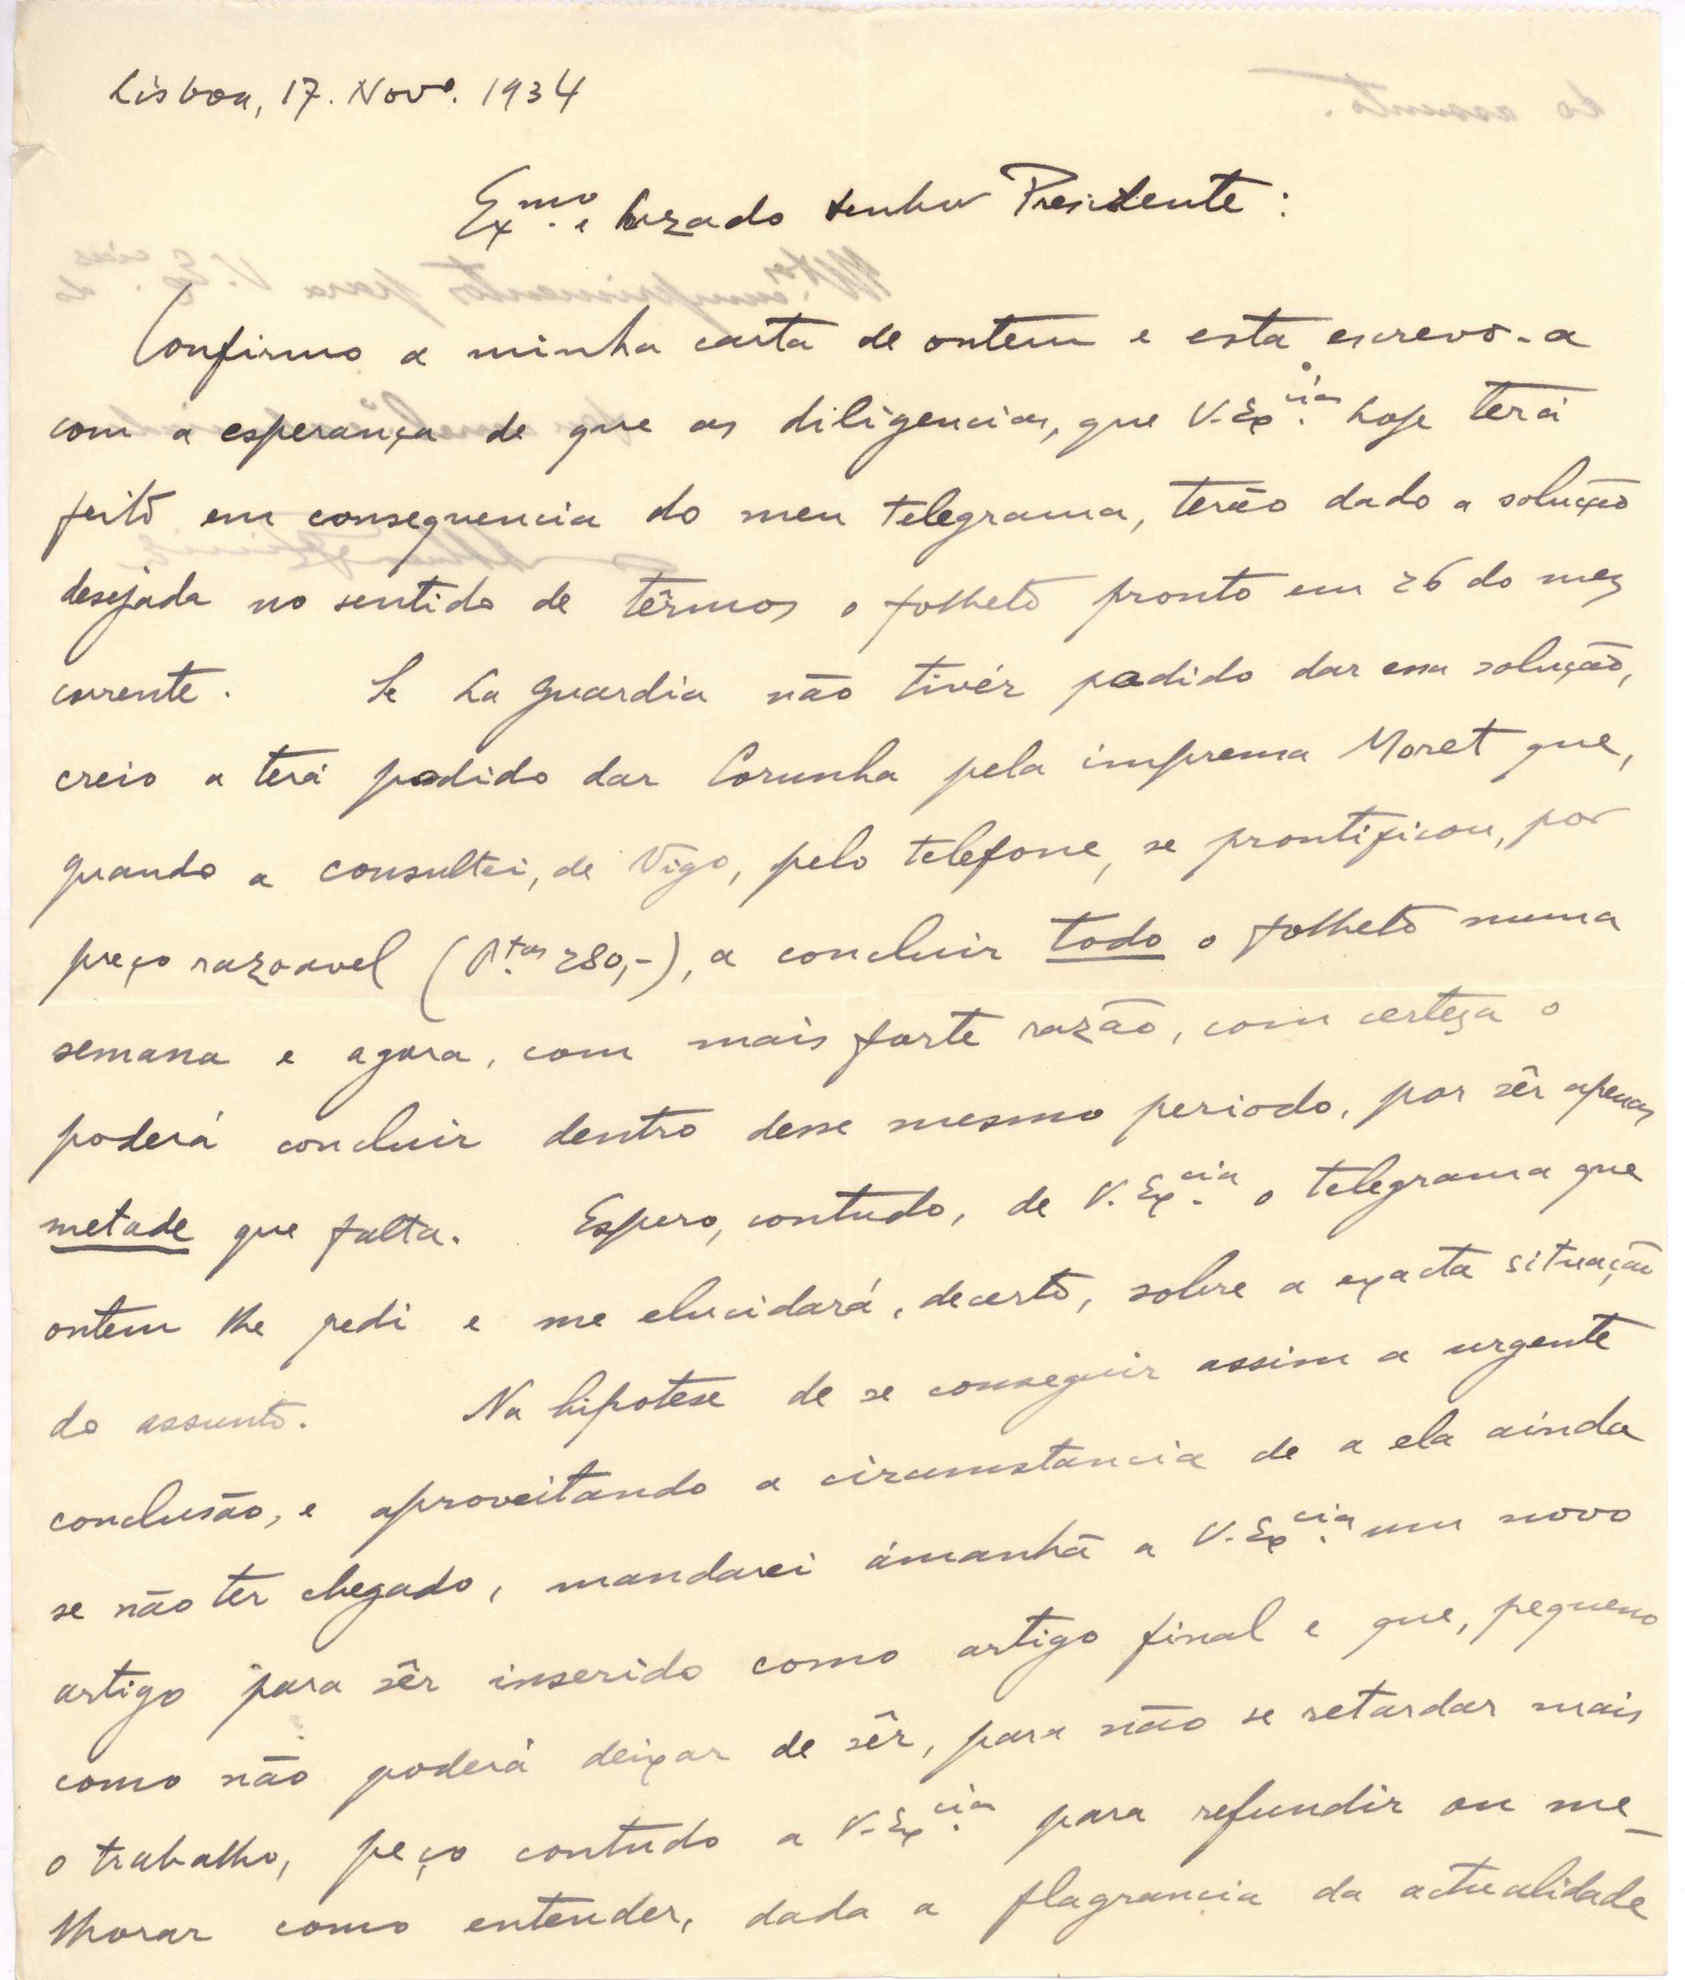 Lisboa, 17. Novº. 1934
Exmo. e prezado senhor Presidente:
Confirmo a minha carta de ontem e esta escrevo-a
com a esperança de que as diligencias, que V. Excia. hoje terá
feito em consequencia do meu telegrama, terão dado a solução
desejada no sentido de têrmos o folheto pronto em 26 do mez
corrente. Se La Guardia não tivér podido dar essa solução,
creio a terá podido dar Corunha pela imprensa Moret que,
quando a consultei, de Vigo, pelo telefone, se prontificou, por
preço razoavel (Ptas. 280,-), a concluir todo o folheto numa
semana e agora, com mais forte razão, com certeza o
poderá concluir dentro desse mesmo periodo, por sêr apenas
metade que falta. Espero, contudo, de V. Excia. o telegrama que
ontem lhe pedi e me elucidará, decerto, sobre a exacta situação
do assunto. Na hipotese de se conseguir assim a urgente
conclusão, e aproveitando a circumstancia de a ela ainda
se não ter chegado, mandarei ámanhã a V. Excia. um novo
artigo para sêr inserido como artigo final e que, pequeno
como não poderá deixar de sêr, para não se retardar mais
o trabalho, peço contudo a V. Excia. para refundir ou me-
lhorar como entender, dada a flagrancia da actualidade